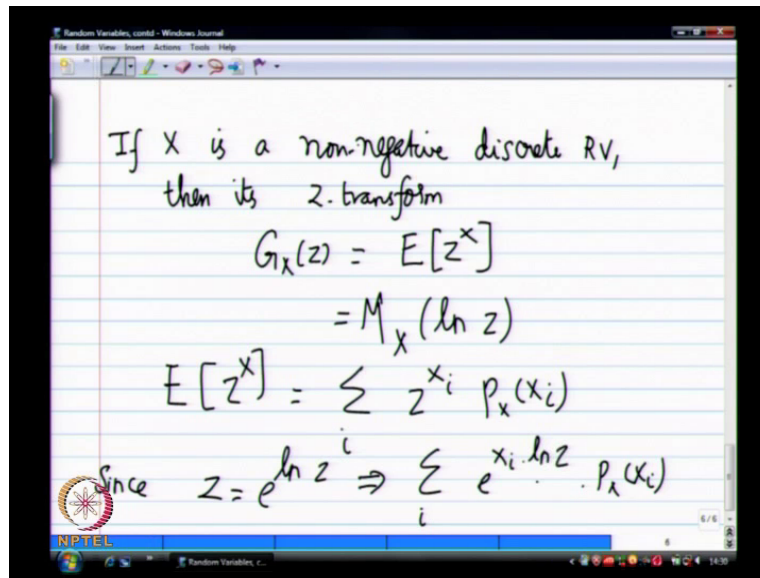 Random Variables, contd - Windows Journal
File Edit View Insert Actions Tools Help
If X is a non-negative discrete RV,
then its z-transform
G_X(z) = E[z^X]
= M_X (ln z)
E[z^X] = Σ_i z^{x_i} P_X(x_i)
Since z = e^{ln z} ⇒ Σ_i e^{x_i · ln z} · P_X(x_i)
6/6
6
NPTEL
Random Variables, c...
14:30